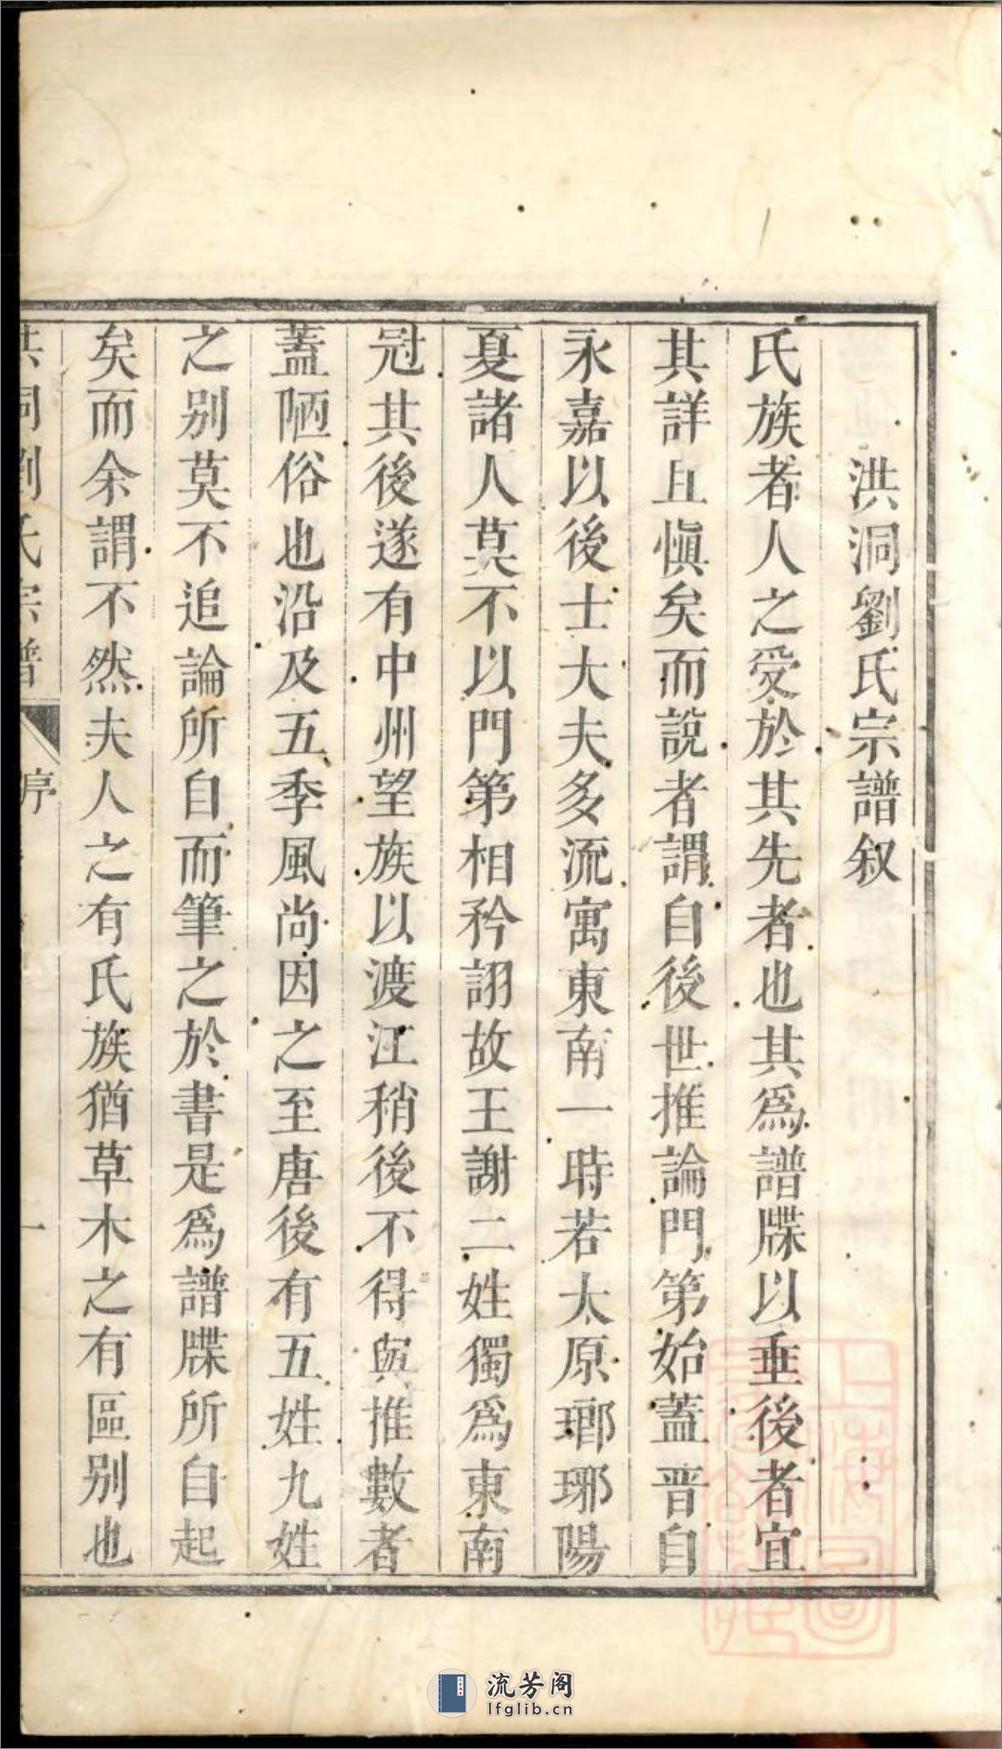 洪洞劉氏宗譜叙
氏族者人之受於其先者也其爲譜牒以垂後者宜
其詳且愼矣而說者謂自後世推論門第始蓋晋自
永嘉以後士大夫多流寓東南一時若太原瑯琊陽
夏諸人莫不以門第相矜詡故王謝二姓獨爲東南
冠其後遂有中州望族以渡江稍後不得與推數者
蓋陋俗也沿及五季風尚因之至唐後有五姓九姓
之别莫不追論所自而筆之於書是爲譜牒所自起
矣而余謂不然夫人之有氏族猶草木之有區别也
洪洞劉氏宗譜 序 一
上海圖書館藏
流芳阁
lfglib.cn